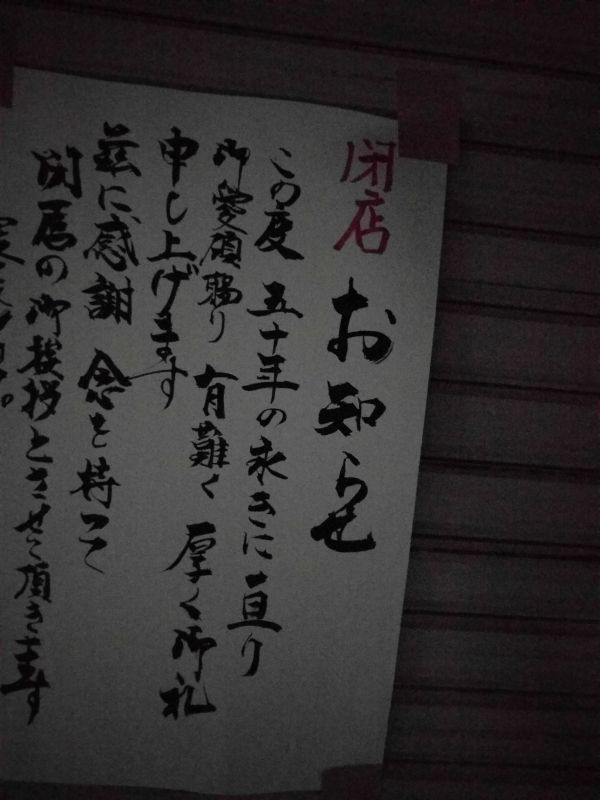 閉店
お知らせ
この度 五十年の永きに亘り
御愛顧賜り 有難く 厚く御礼
申し上げます
茲に感謝 念を持って
閉店の御挨拶とさせて頂きます